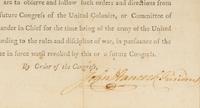 are to observe and follow such orders and directions from
future Congress of the United Colonies, or Committee of
ander in Chief for the time being of the army of the United
ording to the rules and discipline of war, in pursuance of the
in force until revoked by this or a future Congress.
By Order of the Congress,
John Hancock President